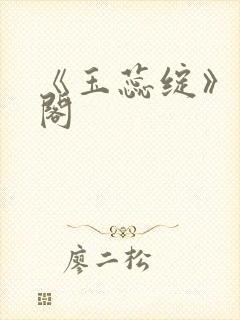 《玉蕊绽》
阁
廖二松